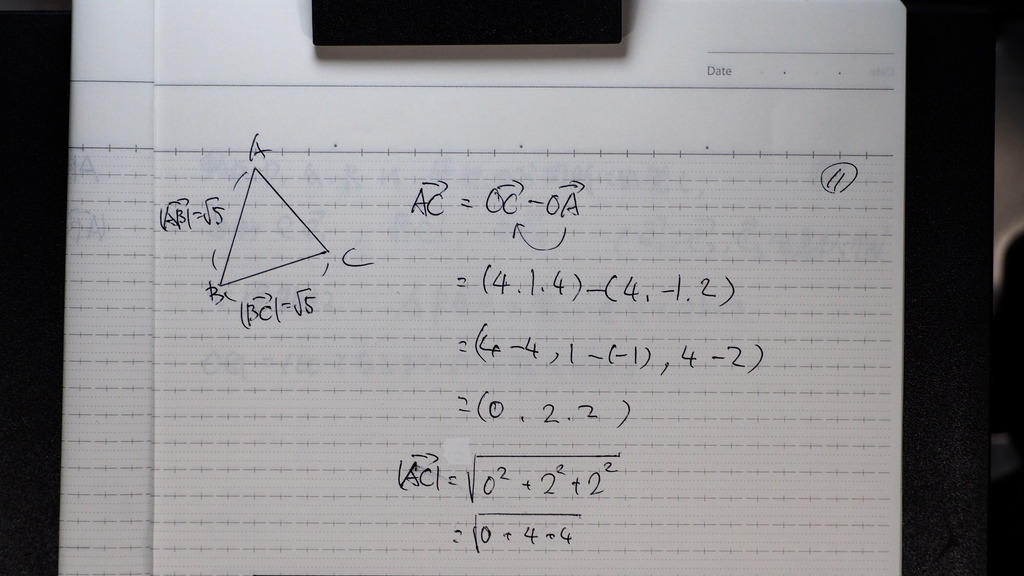 Date
⑪
A
|AB→|=√5
B
C
|BC→|=√5
AC→ = OC→ - OA→
= (4.1.4) - (4. -1. 2)
= (4-4, 1-(-1), 4-2)
= (0. 2. 2)
|AC→| = √0² + 2² + 2²
= √0 + 4 + 4